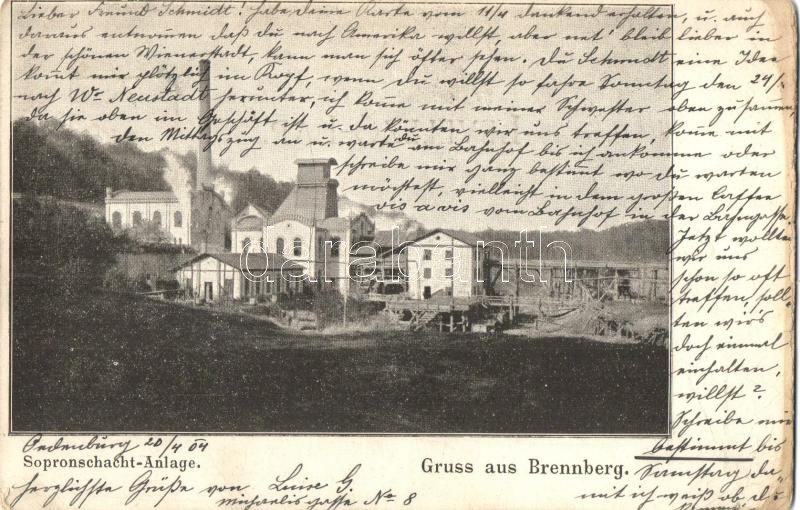 Lieber Freund Schmidt! habe deine Karte vom 11/4 dankend erhalten, u. auch
daraus entnommen daß du nach Amerika willst, aber net bleib lieber in
der schönen Wienerstadt, kann man sich öfter sehen. Du Schmidt eine Idee
kommt mir plötzlich im Kopf, wenn du willst so fahre Sonntag den 24/4
nach Wr Neustadt herunter, ich kome mit meiner Schwester oben zusamen,
da sie oben im Geschäft ist u. da könnten wir uns treffen, kome mit
den Mittagszug an u. warte du am Bahnhof bis ich ankomme oder
schreibe mir ganz bestimt wo du warten
möchtest, vielleicht in dem großen Caffee
vis a vis vom Bahnhof in der Bahngasse.
Jetzt wollten
wir uns
schon so oft
treffen, soll-
ten wirs
doch einmal
einhalten,
willst?
Schreibe mir
bestimmt bis
Samstag da-
mit ich weiß ob du
Oedenburg 20/4 04
Sopronschacht-Anlage.
Gruss aus Brennberg.
herzlichste Grüße von Luise G.
Michaelis gasse No 8
darabanth